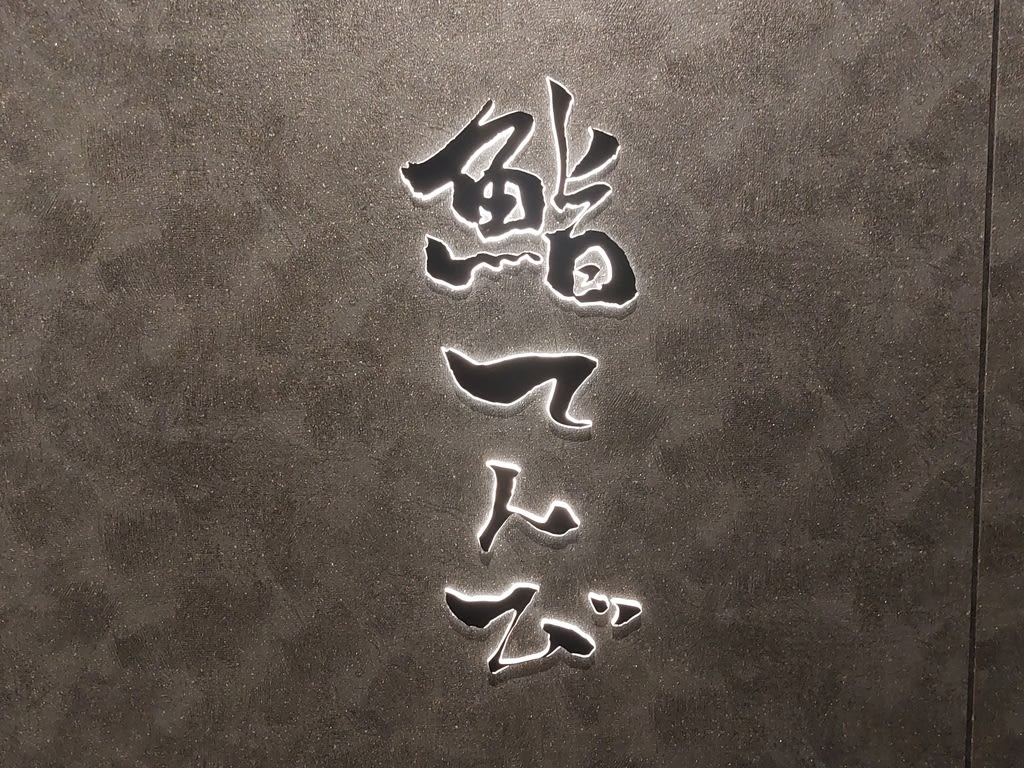 鮨てんび